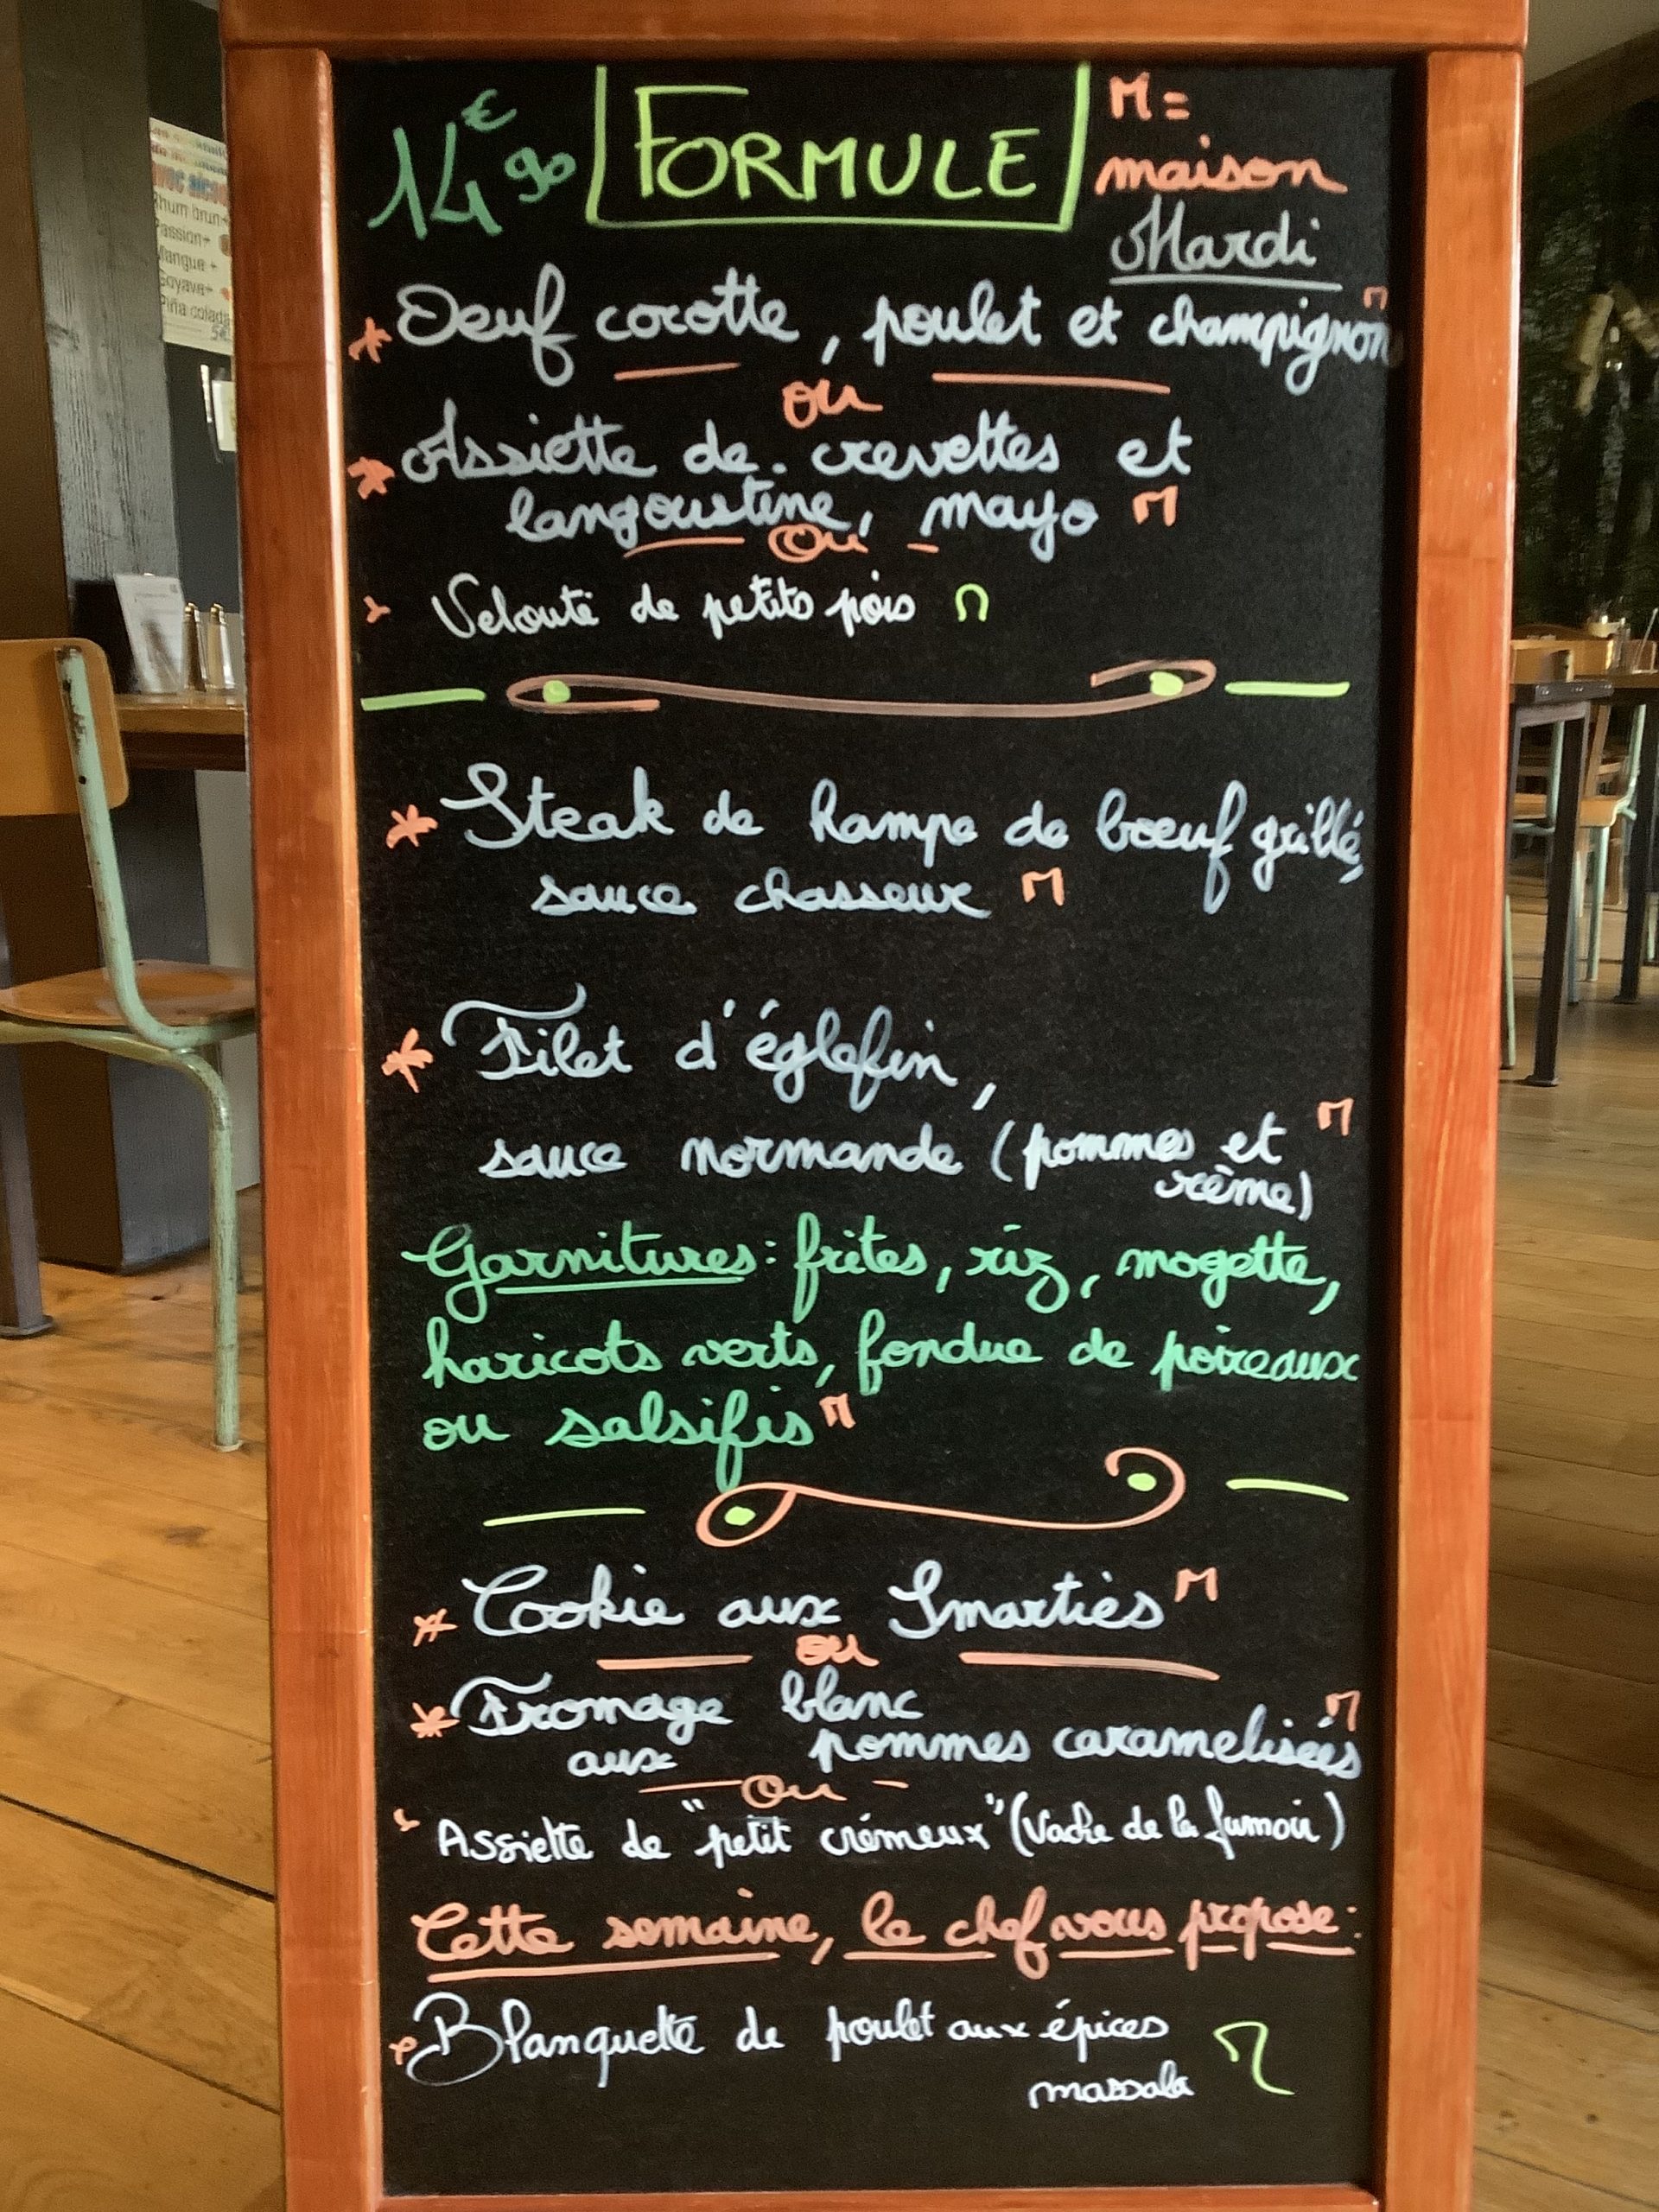 14€90 FORMULE M =
maison
Mardi
* Oeuf cocotte, poulet et champignon M
ou
* Assiette de crevettes et
langoustine, mayo M
Ou
Velouté de petits pois M
* Steak de hampe de boeuf grillé,
sauce chasseur M
* Filet d'églefin,
sauce normande (pommes et M
crème)
Garnitures : frites, riz, mogette,
haricots verts, fondue de poireaux
ou salsifis M
* Cookie aux Smarties M
ou
* Fromage blanc
aux pommes caramelisées M
Ou
Assiette de "petit crémeux" (Vache de la fumoir)
Cette semaine, le chef vous propose :
Blanquette de poulet aux épices
massala M
avec alcool
Rhum brun+
Passion+
Mangue+
Goyave+
Piña colada
5€